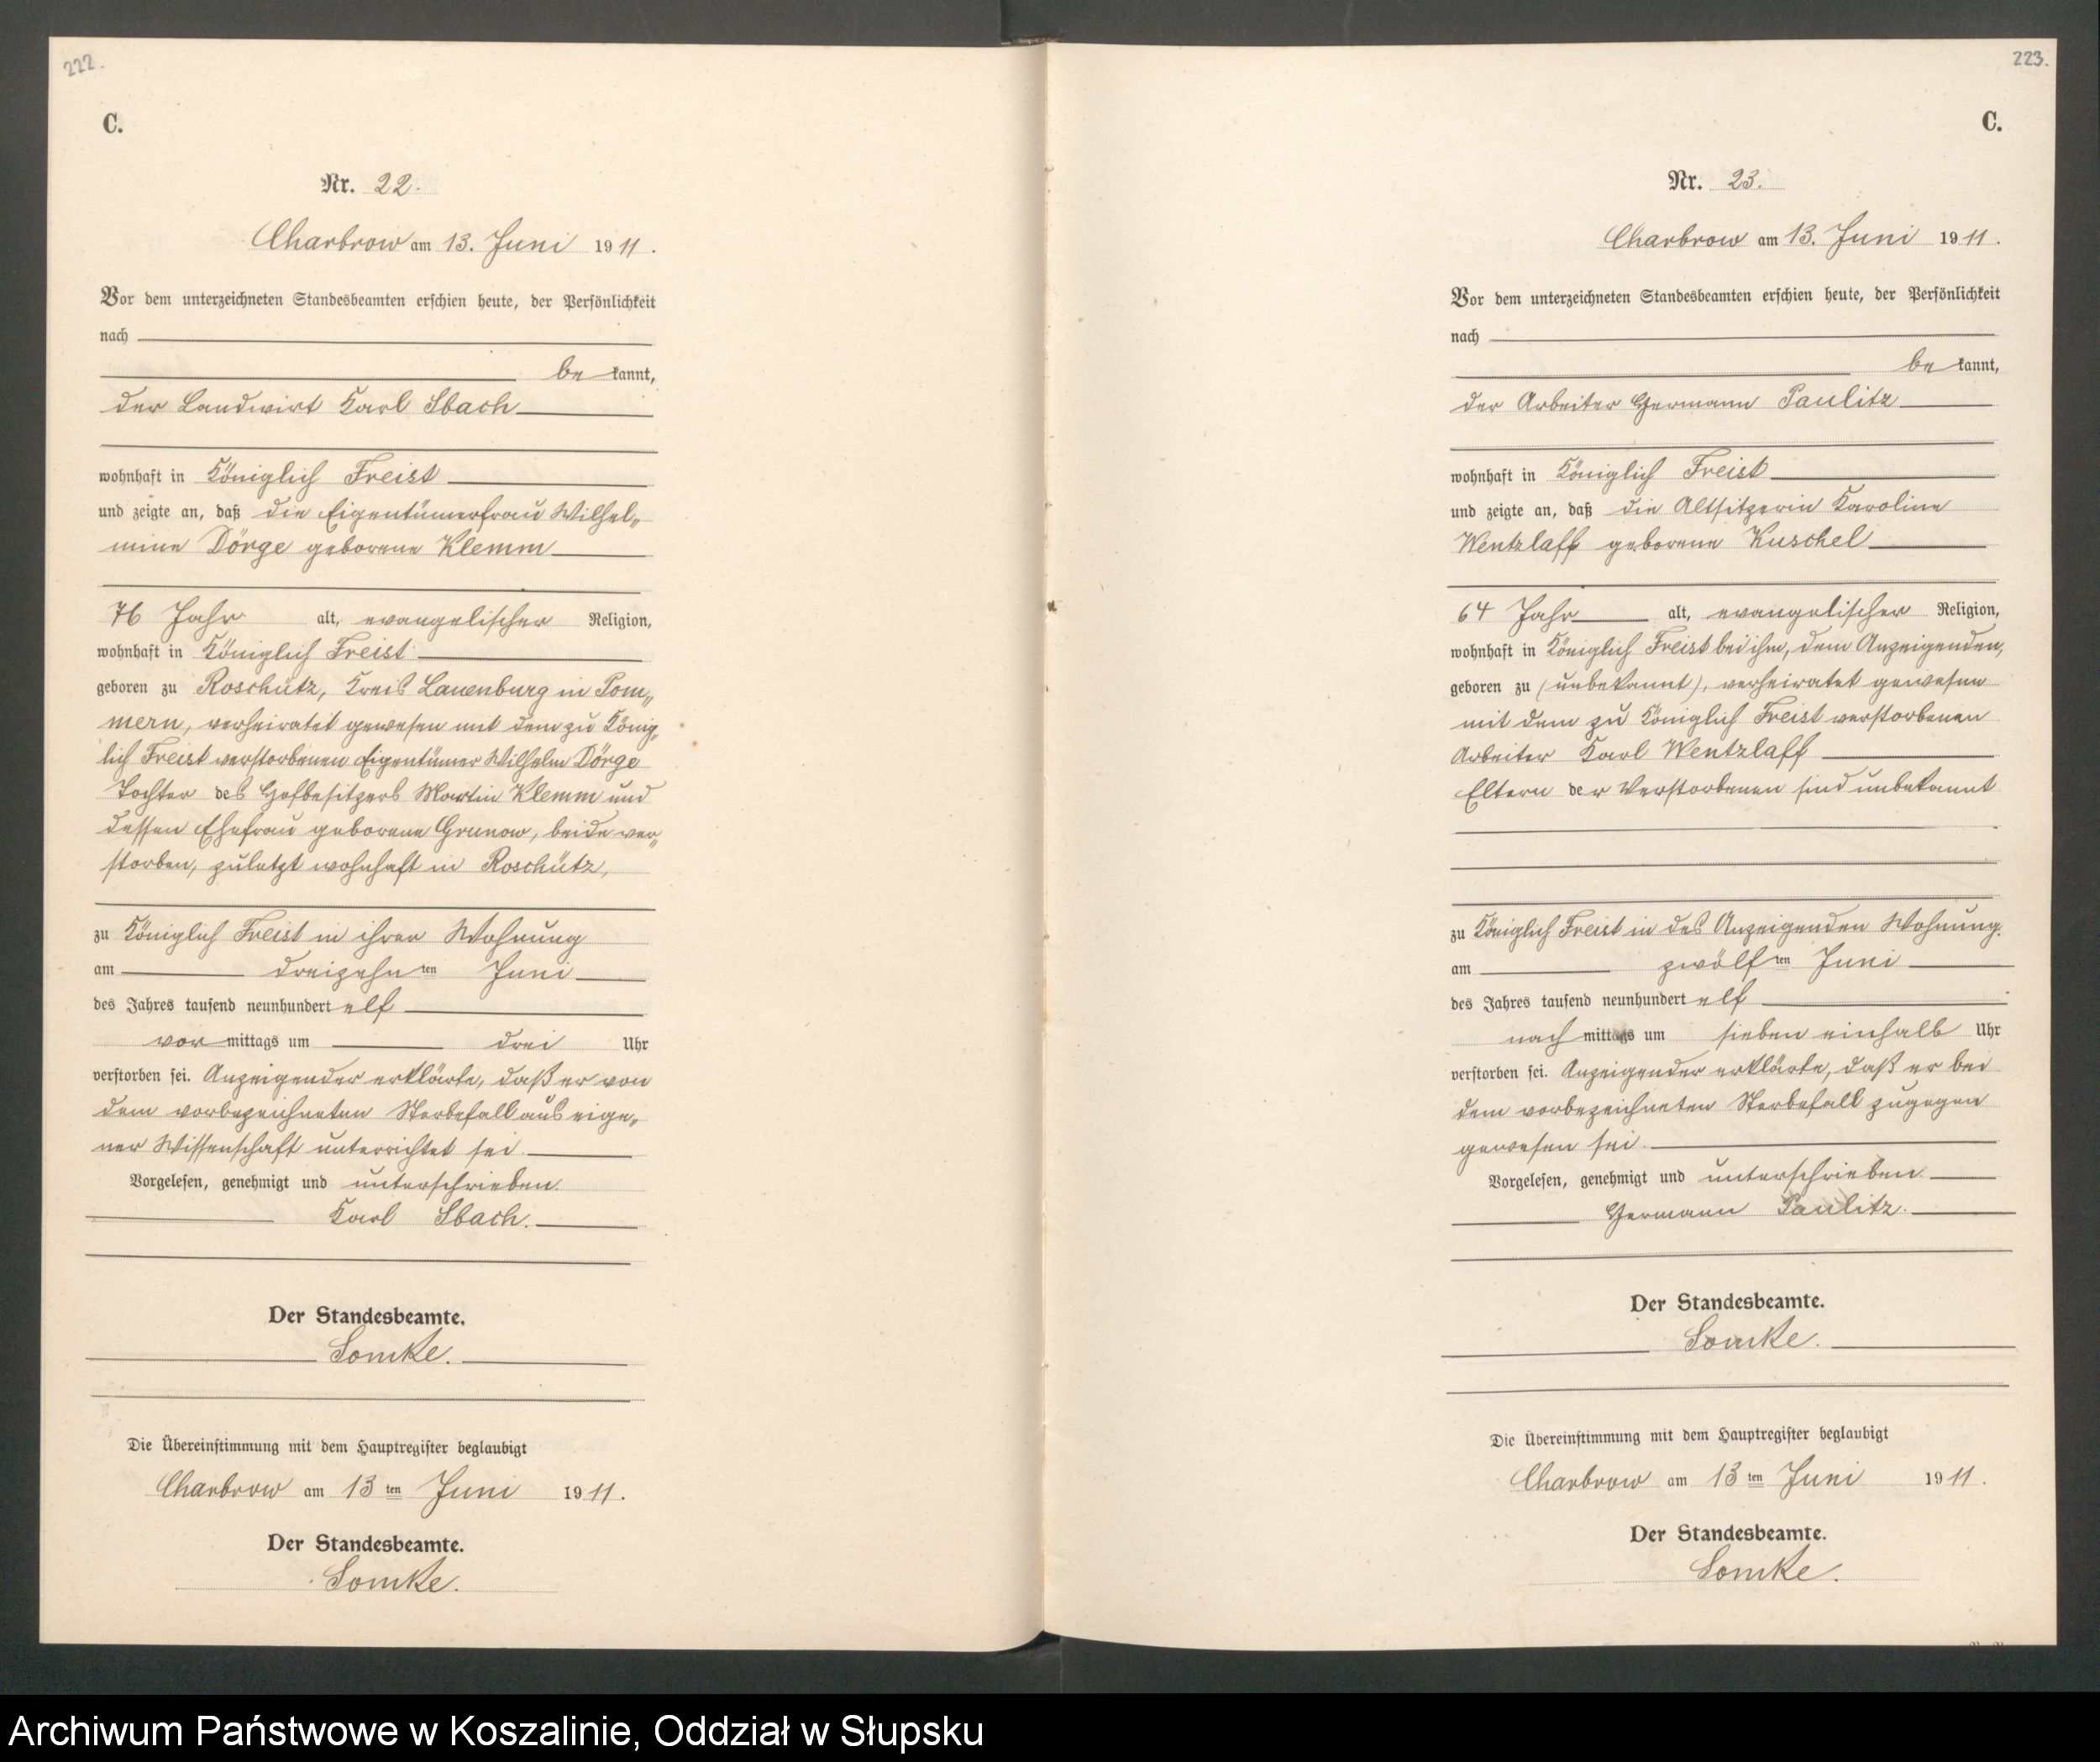 222.
C.
Nr. 22.
Charbrow am 13. Juni 1911.
Vor dem unterzeichneten Standesbeamten erschien heute, der Persönlichkeit
nach
be kannt,
der Landwirt Karl Sbach
wohnhaft in Königlich Freist
und zeigte an, daß die Eigentümerfrau Wilhel„
mine Dörge geborene Klemm
76 Jahr alt, evangelischer Religion,
wohnhaft in Königlich Freist
geboren zu Roschütz, Kreis Lauenburg in Pom„
mern, verheiratet gewesen mit dem zu König„
lich Freist verstorbenen Eigentümer Wilhelm Dörge
Tochter des Hofbesitzers Martin Klemm und
dessen Ehefrau geborene Grunow, beide ver„
storben, zuletzt wohnhaft in Roschütz,
zu Königlich Freist in ihrer Wohnung
am dreizehnten Juni
des Jahres tausend neunhundert elf
vor mittags um drei Uhr
verstorben sei. Anzeigender erklärte, daß er von
dem vorbezeichneten Sterbefall aus eige„
ner Wissenschaft unterrichtet sei.
Vorgelesen, genehmigt und unterschrieben.
Karl Sbach.
Der Standesbeamte.
Lomke.
Die Übereinstimmung mit dem Hauptregister beglaubigt
Charbrow am 13ten Juni 1911.
Der Standesbeamte.
Lomke.
223.
C.
Nr. 23.
Charbrow am 13. Juni 1911.
Vor dem unterzeichneten Standesbeamten erschien heute, der Persönlichkeit
nach
be kannt,
der Arbeiter Hermann Paulitz
wohnhaft in Königlich Freist
und zeigte an, daß die Altsitzerin Karoline
Wentzlaff geborene Kuschel
64 Jahr alt, evangelischer Religion,
wohnhaft in Königlich Freist bei ihm, dem Anzeigenden,
geboren zu (unbekannt), verheiratet gewesen
mit dem zu Königlich Freist verstorbenen
Arbeiter Karl Wentzlaff
Eltern der Verstorbenen sind unbekannt
zu Königlich Freist in des Anzeigenden Wohnung.
am zwölften Juni
des Jahres tausend neunhundert elf
nach mittags um sieben einhalb Uhr
verstorben sei. Anzeigender erklärte, daß er bei
dem vorbezeichneten Sterbefall zugegen
gewesen sei.
Vorgelesen, genehmigt und unterschrieben.
Hermann Paulitz.
Der Standesbeamte.
Lomke.
Die Übereinstimmung mit dem Hauptregister beglaubigt
Charbrow am 13ten Juni 1911.
Der Standesbeamte.
Lomke.
Archiwum Państwowe w Koszalinie, Oddział w Słupsku